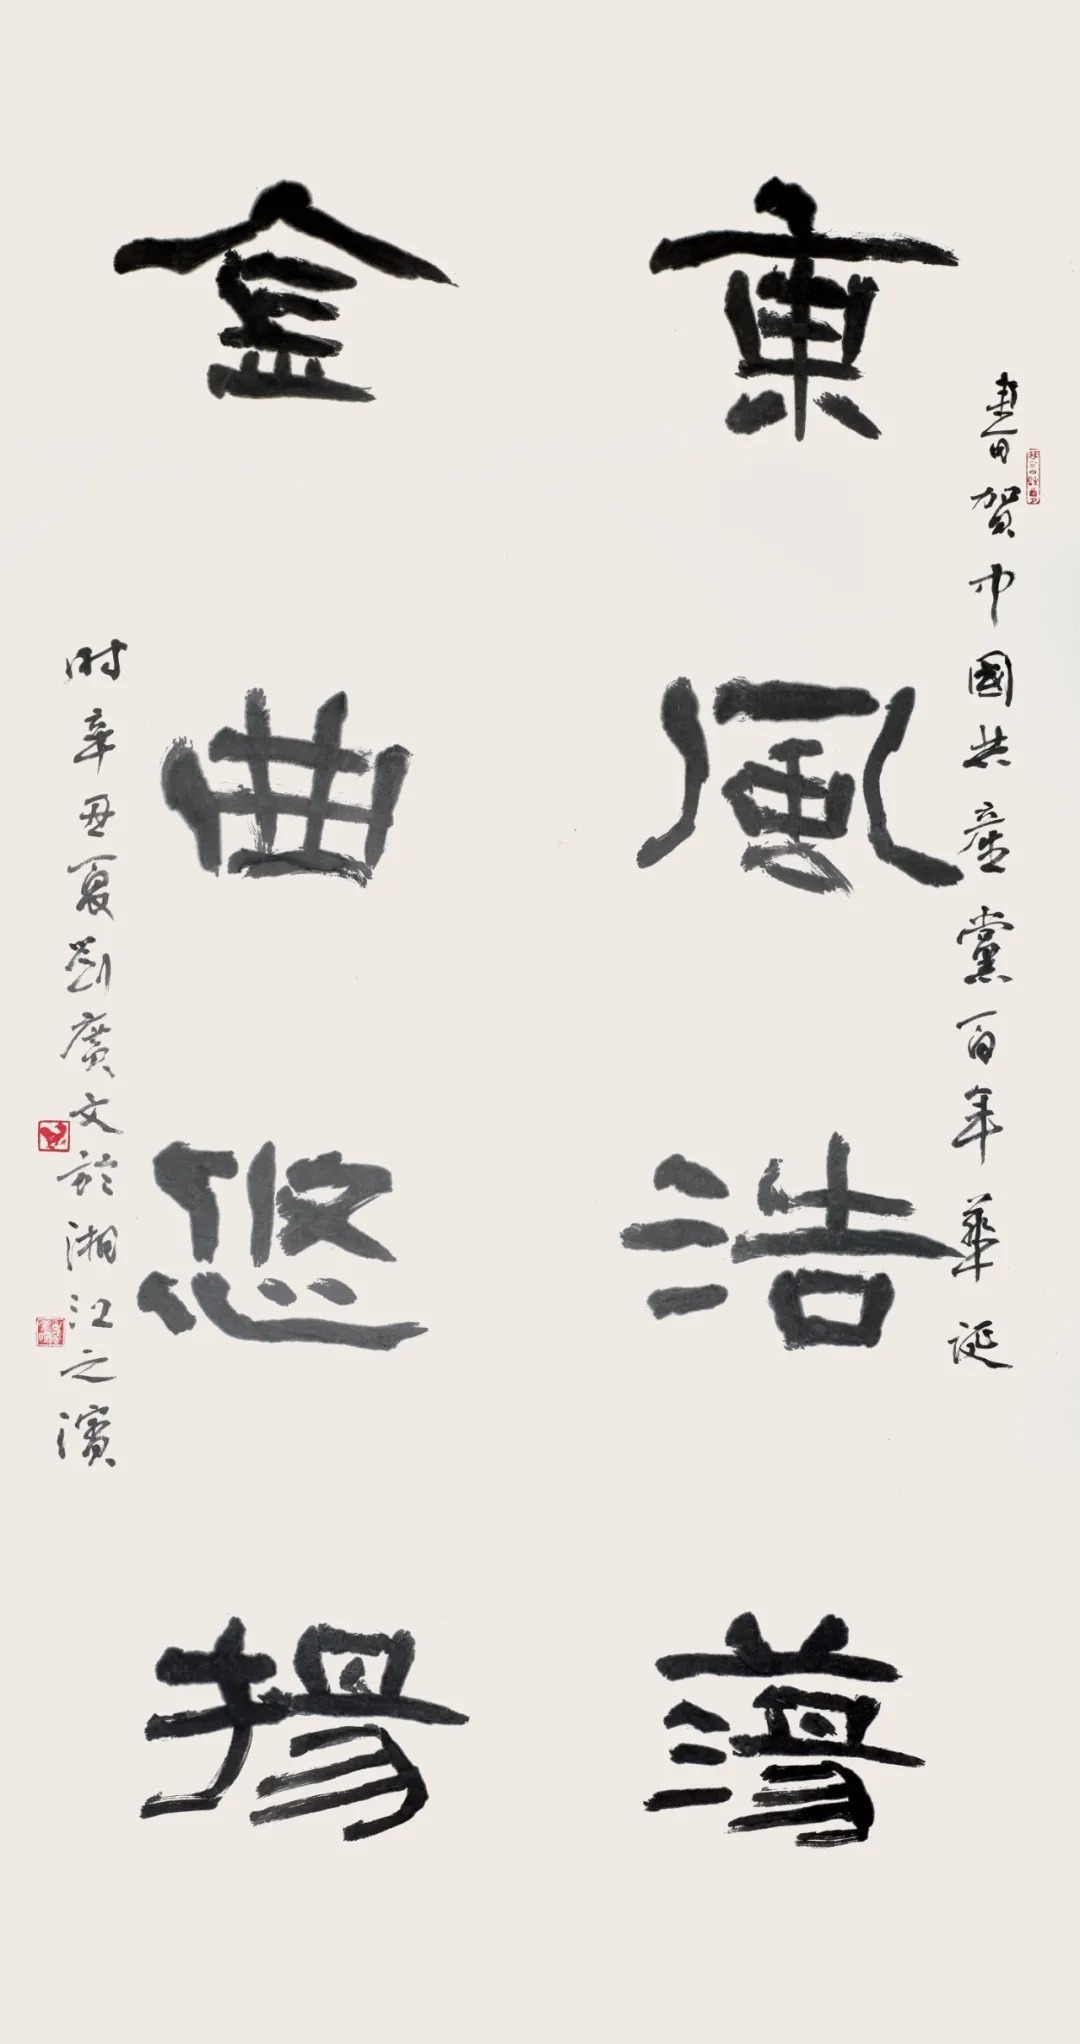 書賀中國共產黨百年華誕
東風浩蕩
金曲悠揚
时辛丑夏劉廣文於湘江之濱